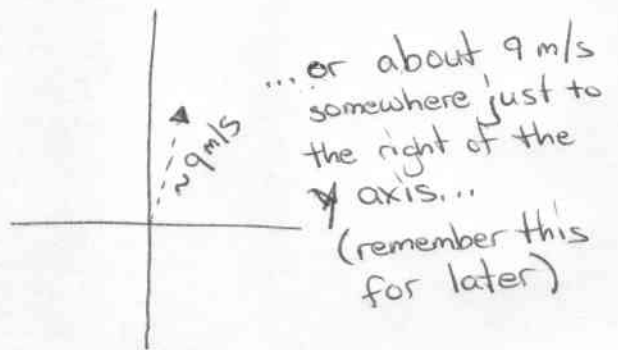 ~9m/s
...or about 9 m/s
somewhere just to
the right of the
y axis...
(remember this
for later)